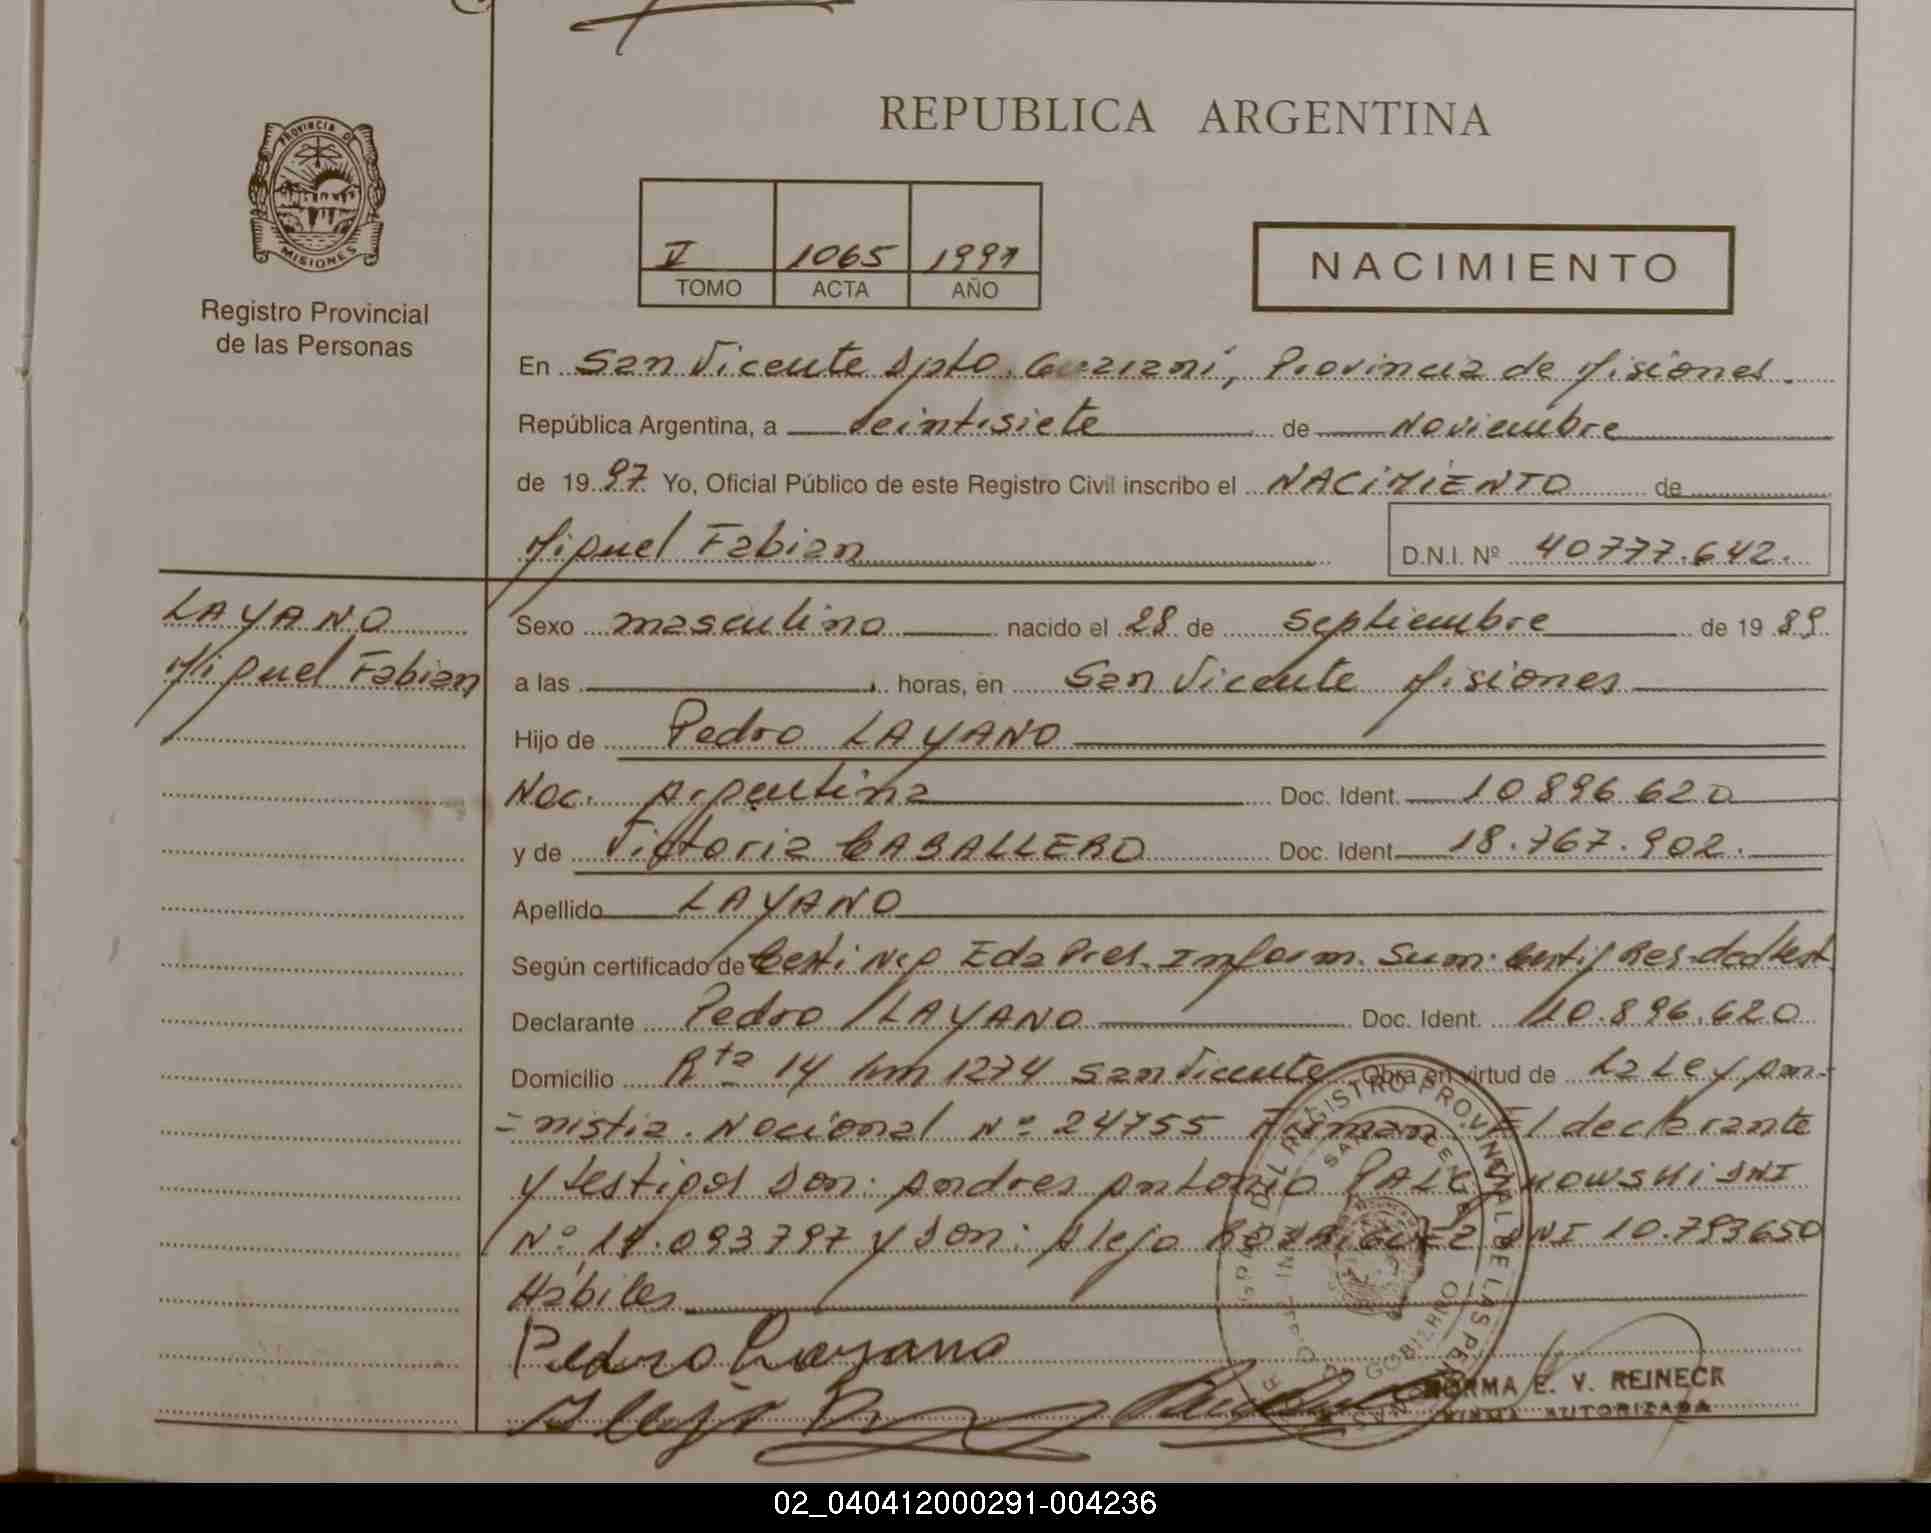 REPUBLICA ARGENTINA
PROVINCIA DE
MISIONES
Registro Provincial
de las Personas
V 1065 1997
TOMO ACTA AÑO
NACIMIENTO
En San Vicente Dpto. Guaraní, Provincia de Misiones.
República Argentina, a veintisiete de Noviembre
de 19 97 Yo, Oficial Público de este Registro Civil inscribo el NACIMIENTO de
Miguel Fabian D.N.I. Nº 40777.642.
LAYANO
Miguel Fabian
Sexo masculino nacido el 28 de septiembre de 19 89
a las horas, en San Vicente Misiones
Hijo de Pedro LAYANO
Nac. Argentina Doc. Ident. 10896620
y de Victoria CABALLERO Doc. Ident. 18.767.902.
Apellido LAYANO
Según certificado de Certi Neg Eda Pres. Inform. Sum. Certif Res. ded test
Declarante Pedro LAYANO Doc. Ident. 10.896.620
Domicilio Rta 14 km 1274 San Vicente Obra en virtud de La Ley Am-
=nistia. Nacional Nº 24755 Firman. El declarante
y testigos Don: Andres Antonio DNI
Nº 14.093797 y Don: Alejo RODRIGUEZ DNI 10.793650
Hábiles
Pedro Layano
Alejo
DEL REGISTRO PROVINCIAL DE LAS PERSONAS
SAN VICENTE
GOBIERNO
NORMA E. V. REINECK
FIRMA AUTORIZADA
02_040412000291-004236